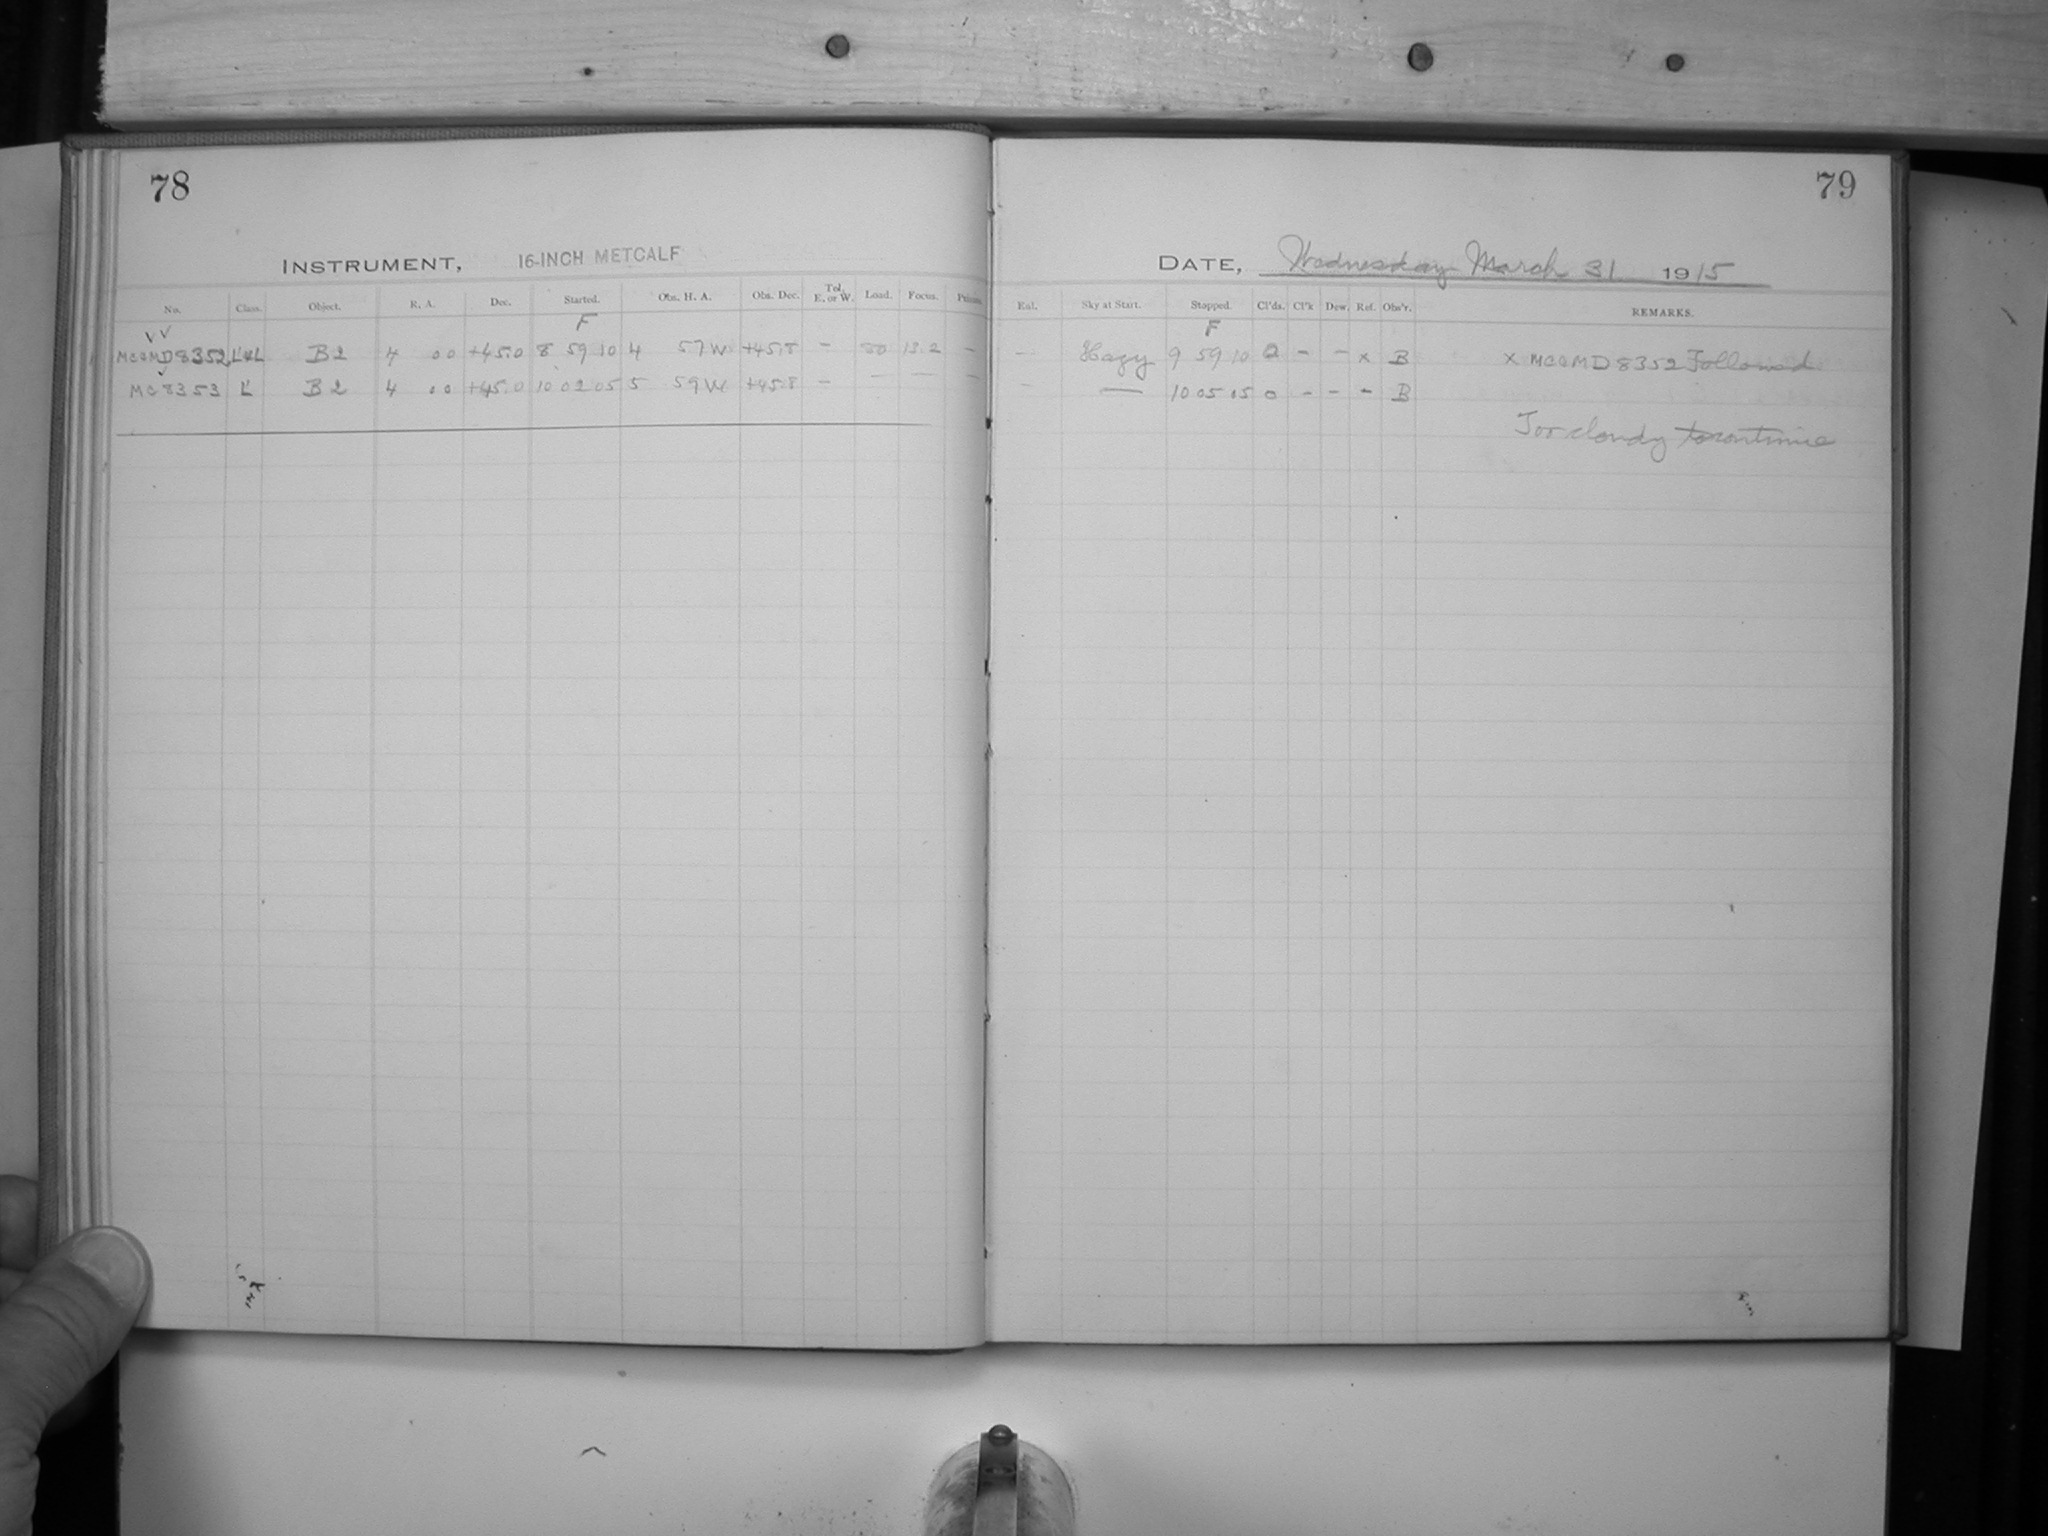 78
INSTRUMENT, 16-INCH METCALF
No. Class. Object. R. A. Dec. Started. Obs. H. A. Obs. Dec. Tel. E. or W. Load. Focus.
F
MC&MD8352 L&L B2 4 00 +45.0 8 59 10 4 57W +45.8 - 80 13.2 -
MC8353 L B2 4 00 +45.0 10 02 05 5 59W +45.8 - - - -
79
DATE, Wednesday March 31 1915
Sky at Start. Stopped. Cl'ds. Cl'k Dew. Ref. Obs'r. REMARKS.
F
- Hazy 9 59 10 2 - - x B x MC&MD8352 Followed
- — 10 05 05 0 - - - B
Too cloudy to continue